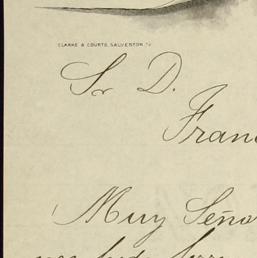 CLARKE & COURTS, GALVESTON.
Sr D.
Fran
Muy Seño